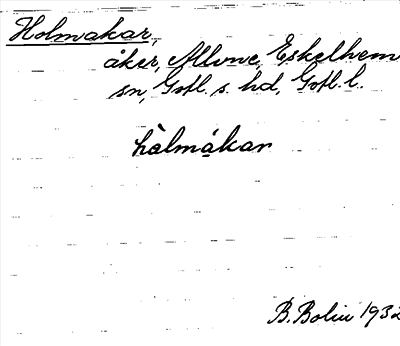 Holmakar,
åker, Allvne, Eskelhem
sn, Gotl. s. hd, Gotl. l.
hàlmákar
B. Bolin 1932